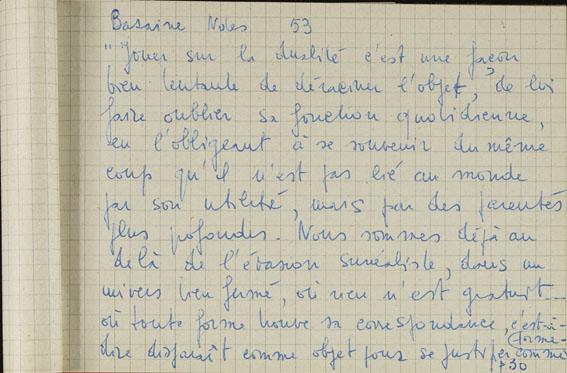 Bazaine Notes 53
"Jouer sur la dualité c'est une façon
bien tentante de déraciner l'objet, de lui
faire oublier sa fonction quotidienne,
en l'obligeant à se souvenir du même
coup qu'il n'est pas lié au monde
par son utilité, mais par des parentés
plus profondes. Nous sommes déjà au
delà de l'évasion surréaliste, dans un
univers bien fermé, où rien n'est gratuit...
où toute forme trouve sa correspondance, c'est-à-
dire disparaît comme objet pour se justifier comme
forme-
p 30